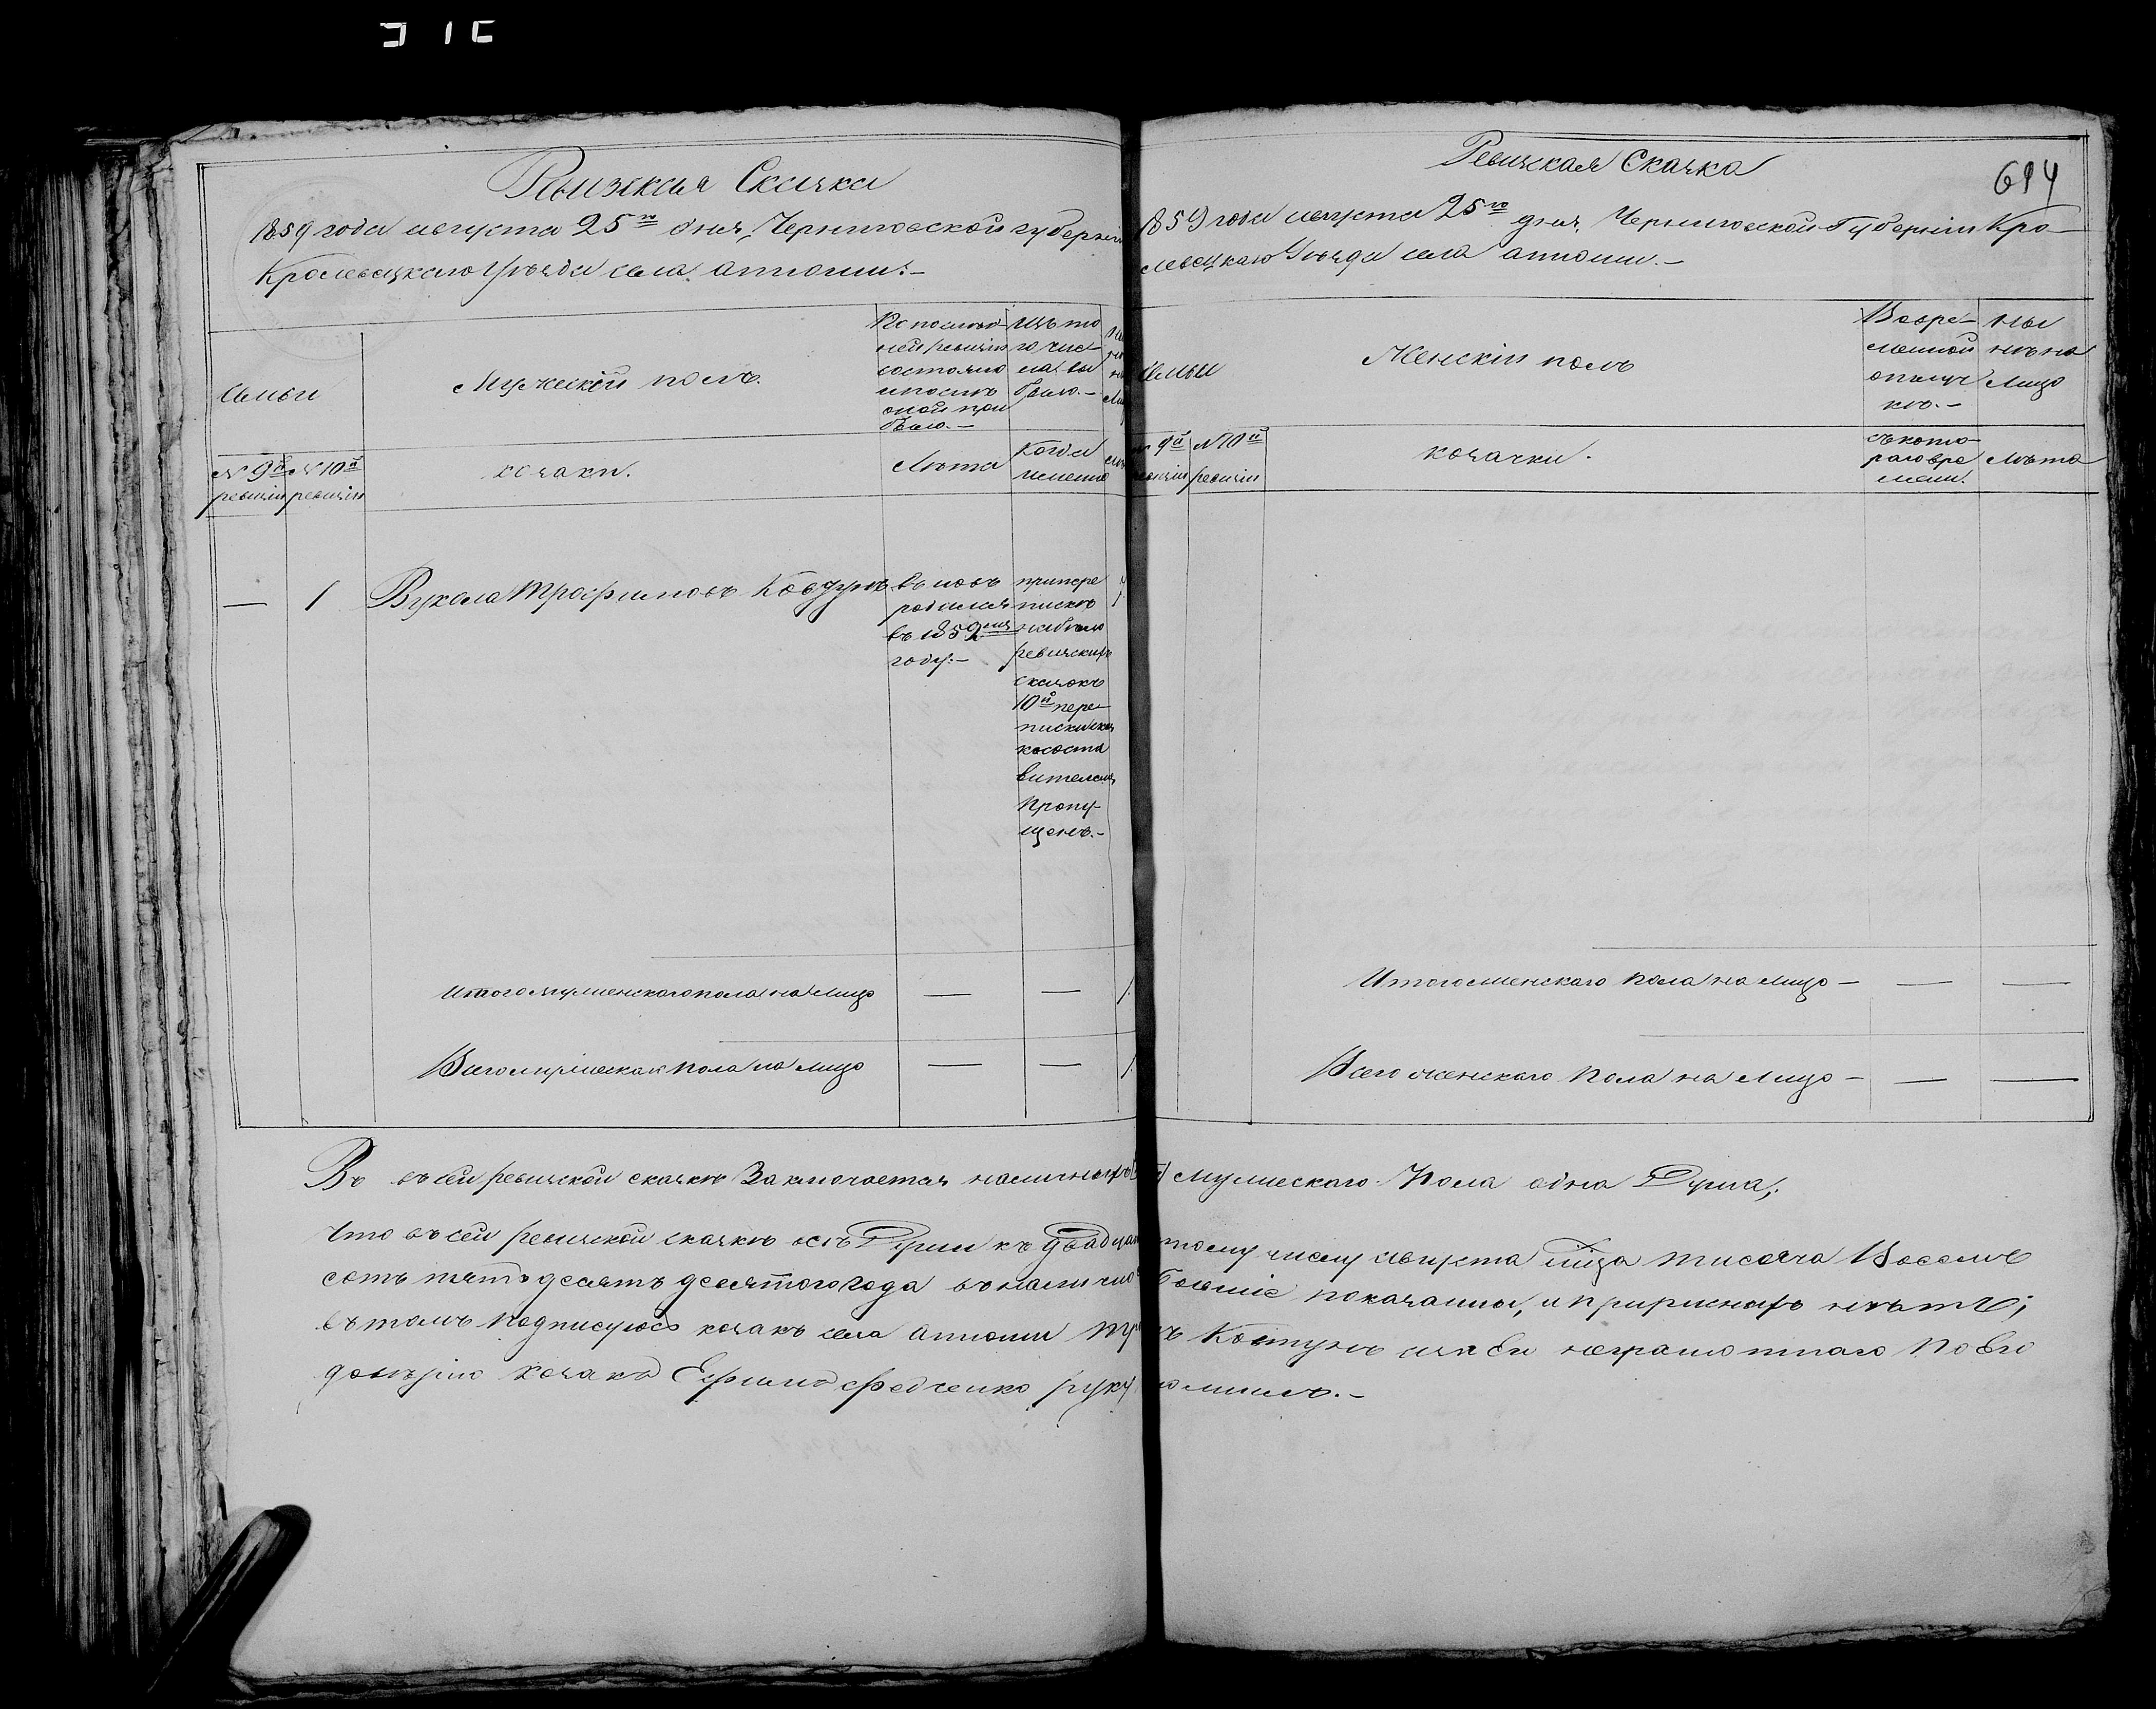 Ревизская Сказка
1859 года августа 25го дня, Черниговской губернии
Кролевецкаго Уѣзда села
Семьи
Мужескій полъ.
По послѣд-
ней ревизіи
состояло
и послѣ
оной при
было.-
Изъ то
го чис-
ла вы
было.-
№ 9й
ревизіи
№ 10й
ревизіи
козаки.
Лѣта
Когда
именно
— 1 Вукола Трофимовъ
въ новь
родился
въ 1852мъ
году.-
при пере
пискѣ
ревизскихъ
сказокъ
10й пере-
писки
Пропу-
щенъ.-
1
Итого мужескаго пола на лицо — — 1
Всего мужескаго пола на лицо — — 1
Ревизская Сказка
614
1859 года августа 25го дня, Черниговской Губерніи Кро-
левецкаго Уѣзда села
Семьи
Женскій полъ
Во вре-
менной
отлуч
кѣ.-
Ны
нѣ на
Лицо
9й
№ 10й
ревизіи
козачки.
Съ кото-
раго вре
мени.
Лѣта
Итого женскаго пола на лицо — — —
Всего женскаго пола на лицо — — —
Въ сей ревизской сказкѣ Заключается наличныхъ мужескаго Пола одна Душа,.
Что въ сей ревизской сказкѣ всѣ Души къ двадцатому числу августа мца тисяча Восемъ
сотъ пятдесятъ девятого года въ наличіе показанны, и прописныхъ нѣтъ;
въ томъ подписуюсь козакъ села неграмотнаго по Его
довѣрію козакъ Ефимъ Федченко руку